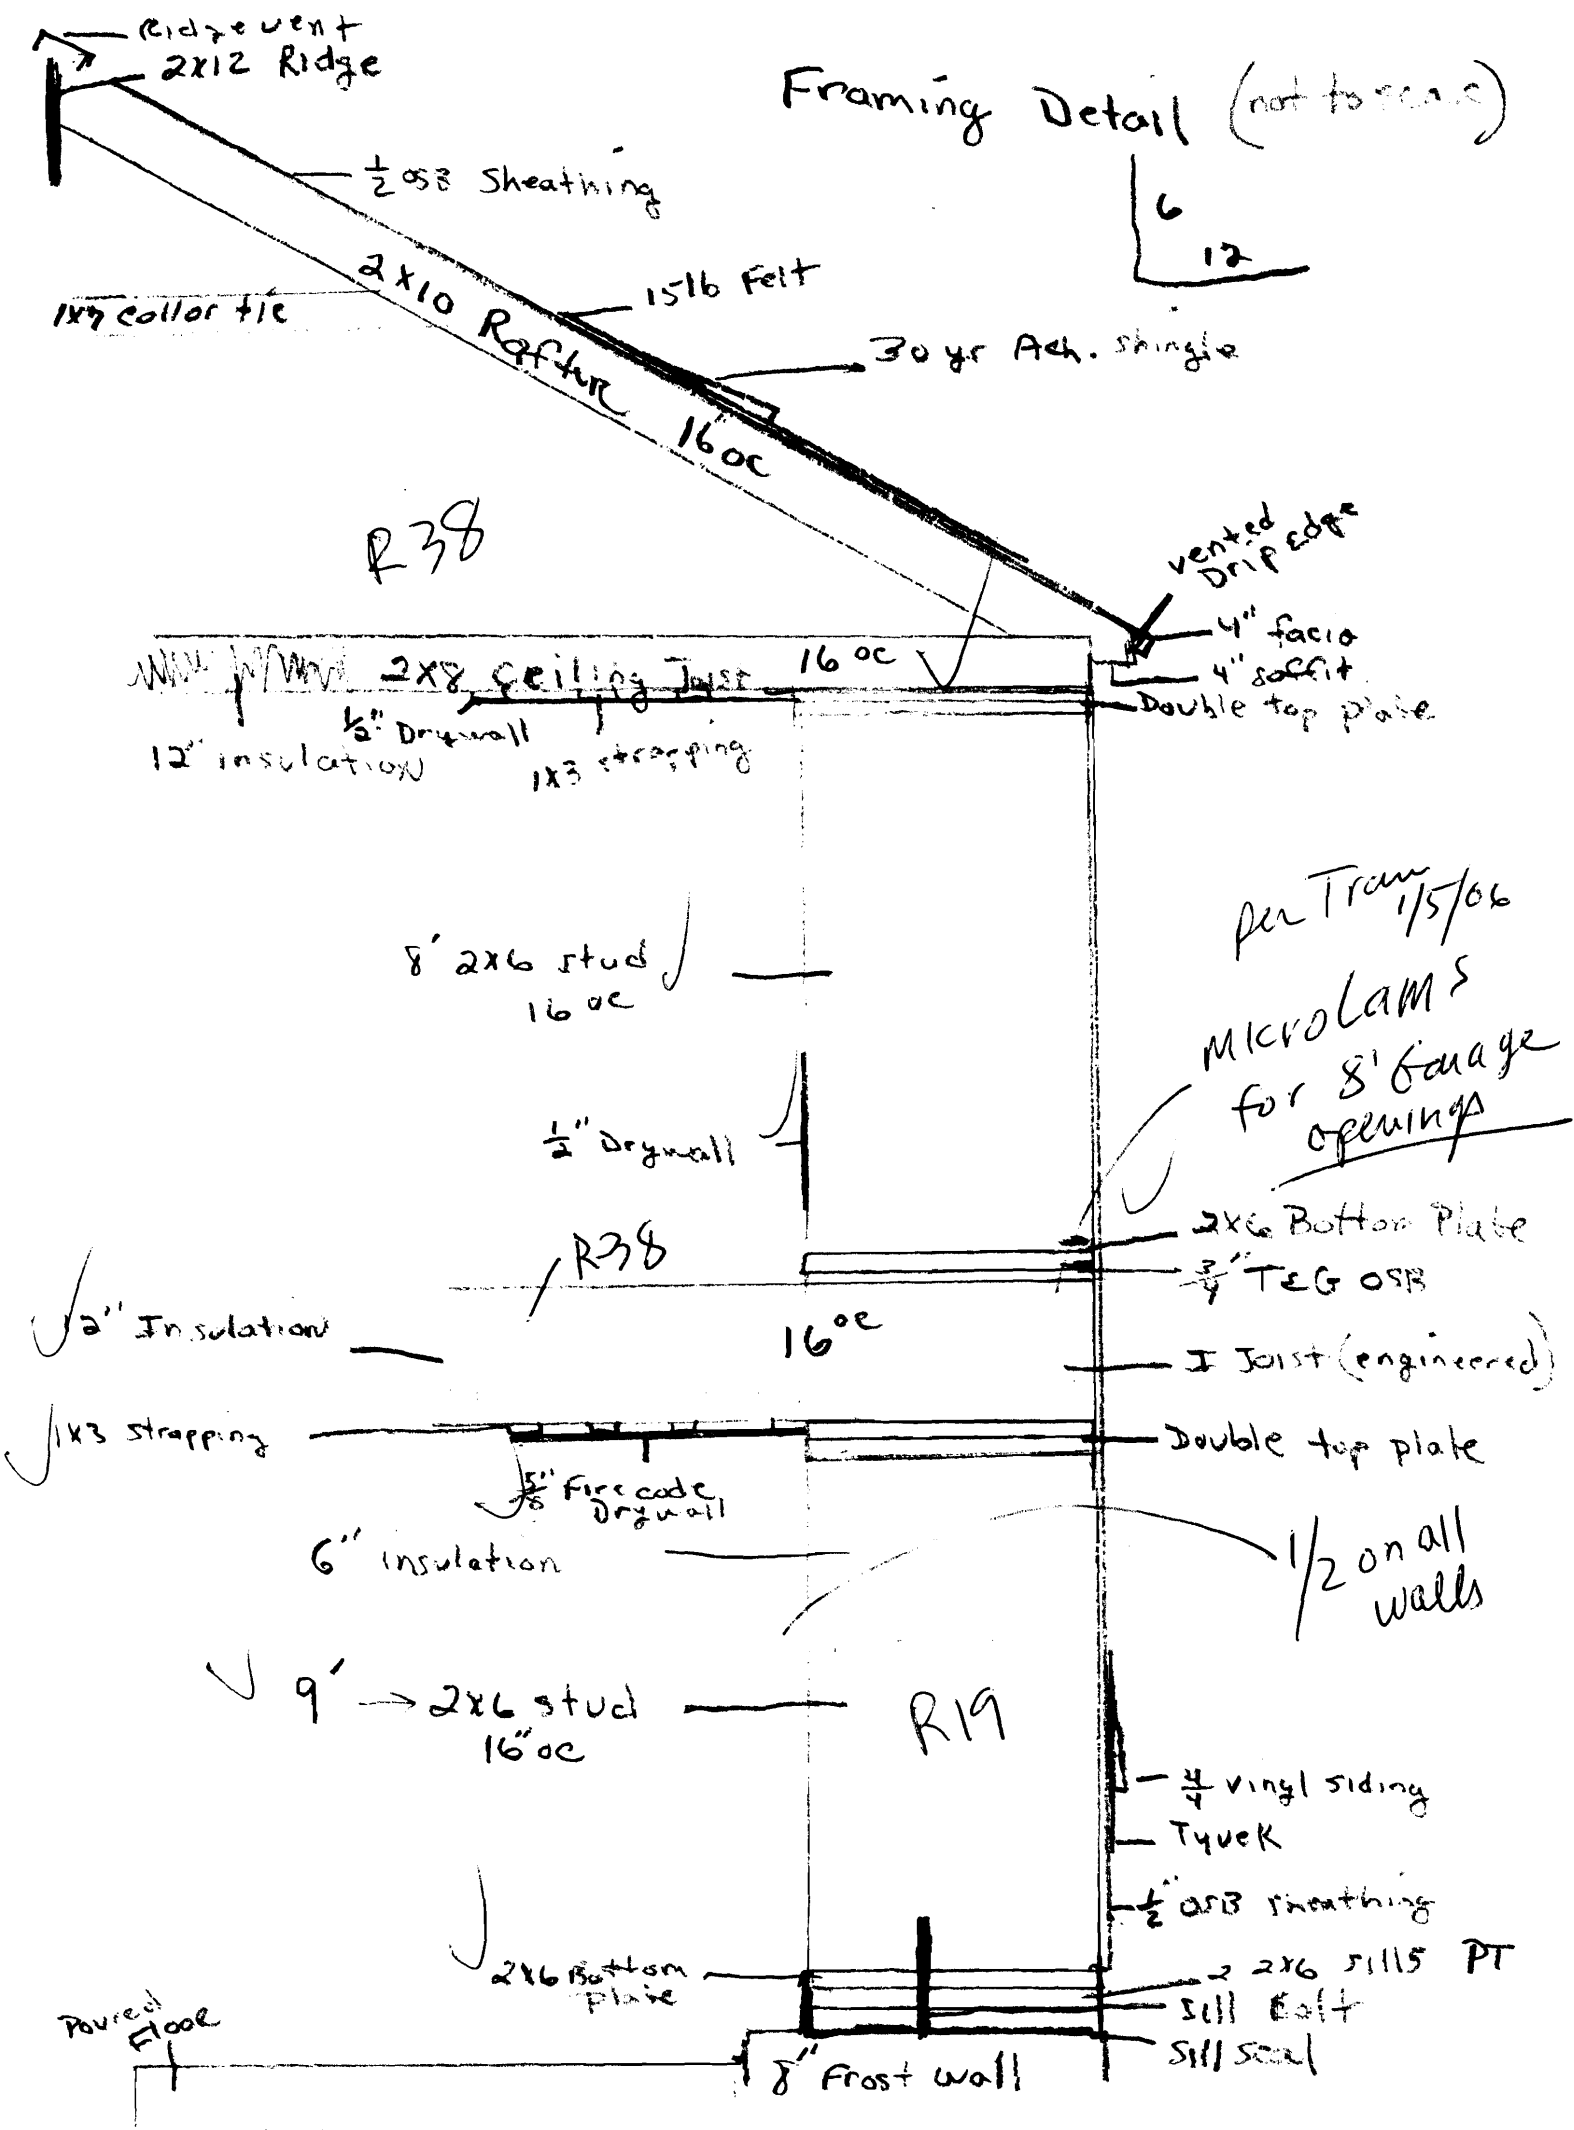 Ridge vent
2x12 Ridge
Framing Detail (not to scale)
1/2 OSB Sheathing
6
12
2x10 Rafter 16 oc
15lb Felt
collor tie
30 yr Ach. shingle
R38
vented
Drip edge
4" facia
4" soffit
2x8 Ceiling Joist 16 oc
Double top plate
1/2" Drywall
12" insulation
1x3 strapping
per Tram
1/5/06
8' 2x6 stud
16 oc
Microlams
for 8' Garage
openings
1/2" Drywall
2x6 Bottom Plate
R38
3/4" T&G OSB
12" Insulation
16 oc
I Joist (engineered)
1x3 strapping
Double top plate
5/8" Fire code
Drywall
6" insulation
1/2 on all
walls
9' → 2x6 stud
16" oc
R19
4/4 vinyl siding
Tyvek
1/2" OSB sheathing
2x6 Bottom
plate
2 2x6 sills PT
Sill Bolt
Sill seal
Poured
Floor
8" Frost wall